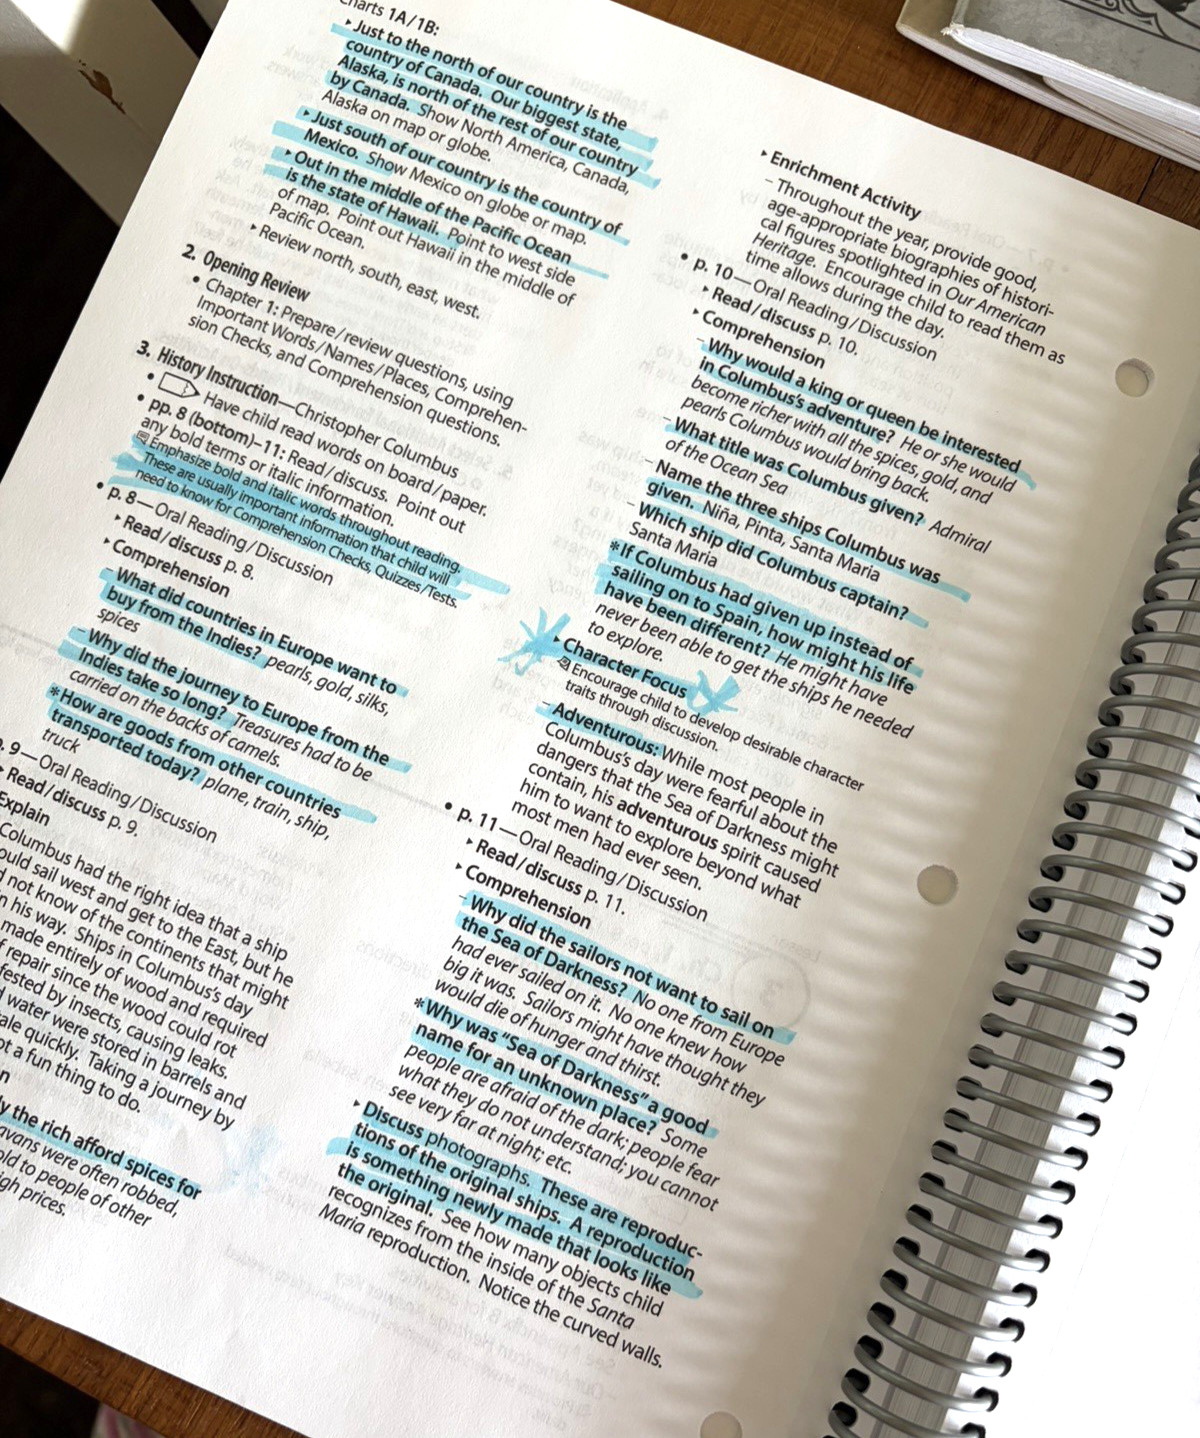 Charts 1A/1B:
‣ Just to the north of our country is the
country of Canada. Our biggest state,
Alaska, is north of the rest of our country
by Canada. Show North America, Canada,
Alaska on map or globe.
‣ Just south of our country is the country of
Mexico. Show Mexico on globe or map.
‣ Out in the middle of the Pacific Ocean
is the state of Hawaii. Point to west side
of map. Point out Hawaii in the middle of
Pacific Ocean.
‣ Review north, south, east, west.
2. Opening Review
• Chapter 1: Prepare/review questions, using
Important Words/Names/Places, Comprehen-
sion Checks, and Comprehension questions.
3. History Instruction—Christopher Columbus
• Have child read words on board/paper.
• pp. 8 (bottom)–11: Read/discuss. Point out
any bold terms or italic information.
Emphasize bold and italic words throughout reading.
These are usually important information that child will
need to know for Comprehension Checks, Quizzes/Tests.
• p. 8—Oral Reading/Discussion
‣ Read/discuss p. 8.
‣ Comprehension
– What did countries in Europe want to
buy from the Indies? pearls, gold, silks,
spices
– Why did the journey to Europe from the
Indies take so long? Treasures had to be
carried on the backs of camels.
* How are goods from other countries
transported today? plane, train, ship,
truck
. 9—Oral Reading/Discussion
‣ Read/discuss p. 9.
Explain
Columbus had the right idea that a ship
ould sail west and get to the East, but he
not know of the continents that might
n his way. Ships in Columbus's day
made entirely of wood and required
repair since the wood could not
fested by insects, causing leaks.
water were stored in barrels and
ale quickly. Taking a journey by
ot a fun thing to do.
n
y the rich afford spices for
avans were often robbed,
old to people of other
igh prices.
‣ Enrichment Activity
– Throughout the year, provide good,
age-appropriate biographies of histori-
cal figures spotlighted in Our American
Heritage. Encourage child to read them as
time allows during the day.
• p. 10—Oral Reading/Discussion
‣ Read/discuss p. 10.
‣ Comprehension
– Why would a king or queen be interested
in Columbus's adventure? He or she would
become richer with all the spices, gold, and
pearls Columbus would bring back.
– What title was Columbus given? Admiral
of the Ocean Sea
– Name the three ships Columbus was
given. Niña, Pinta, Santa Maria
– Which ship did Columbus captain?
Santa Maria
* If Columbus had given up instead of
sailing on to Spain, how might his life
have been different? He might have
never been able to get the ships he needed
to explore.
‣ Character Focus
Encourage child to develop desirable character
traits through discussion.
– Adventurous: While most people in
Columbus's day were fearful about the
dangers that the Sea of Darkness might
contain, his adventurous spirit caused
him to want to explore beyond what
most men had ever seen.
• p. 11—Oral Reading/Discussion
‣ Read/discuss p. 11.
‣ Comprehension
– Why did the sailors not want to sail on
the Sea of Darkness? No one from Europe
had ever sailed on it. No one knew how
big it was. Sailors might have thought they
would die of hunger and thirst.
* Why was "Sea of Darkness" a good
name for an unknown place? Some
people are afraid of the dark; people fear
what they do not understand; you cannot
see very far at night; etc.
‣ Discuss photographs. These are reproduc-
tions of the original ships. A reproduction
is something newly made that looks like
the original. See how many objects child
recognizes from the inside of the Santa
Maria reproduction. Notice the curved walls.